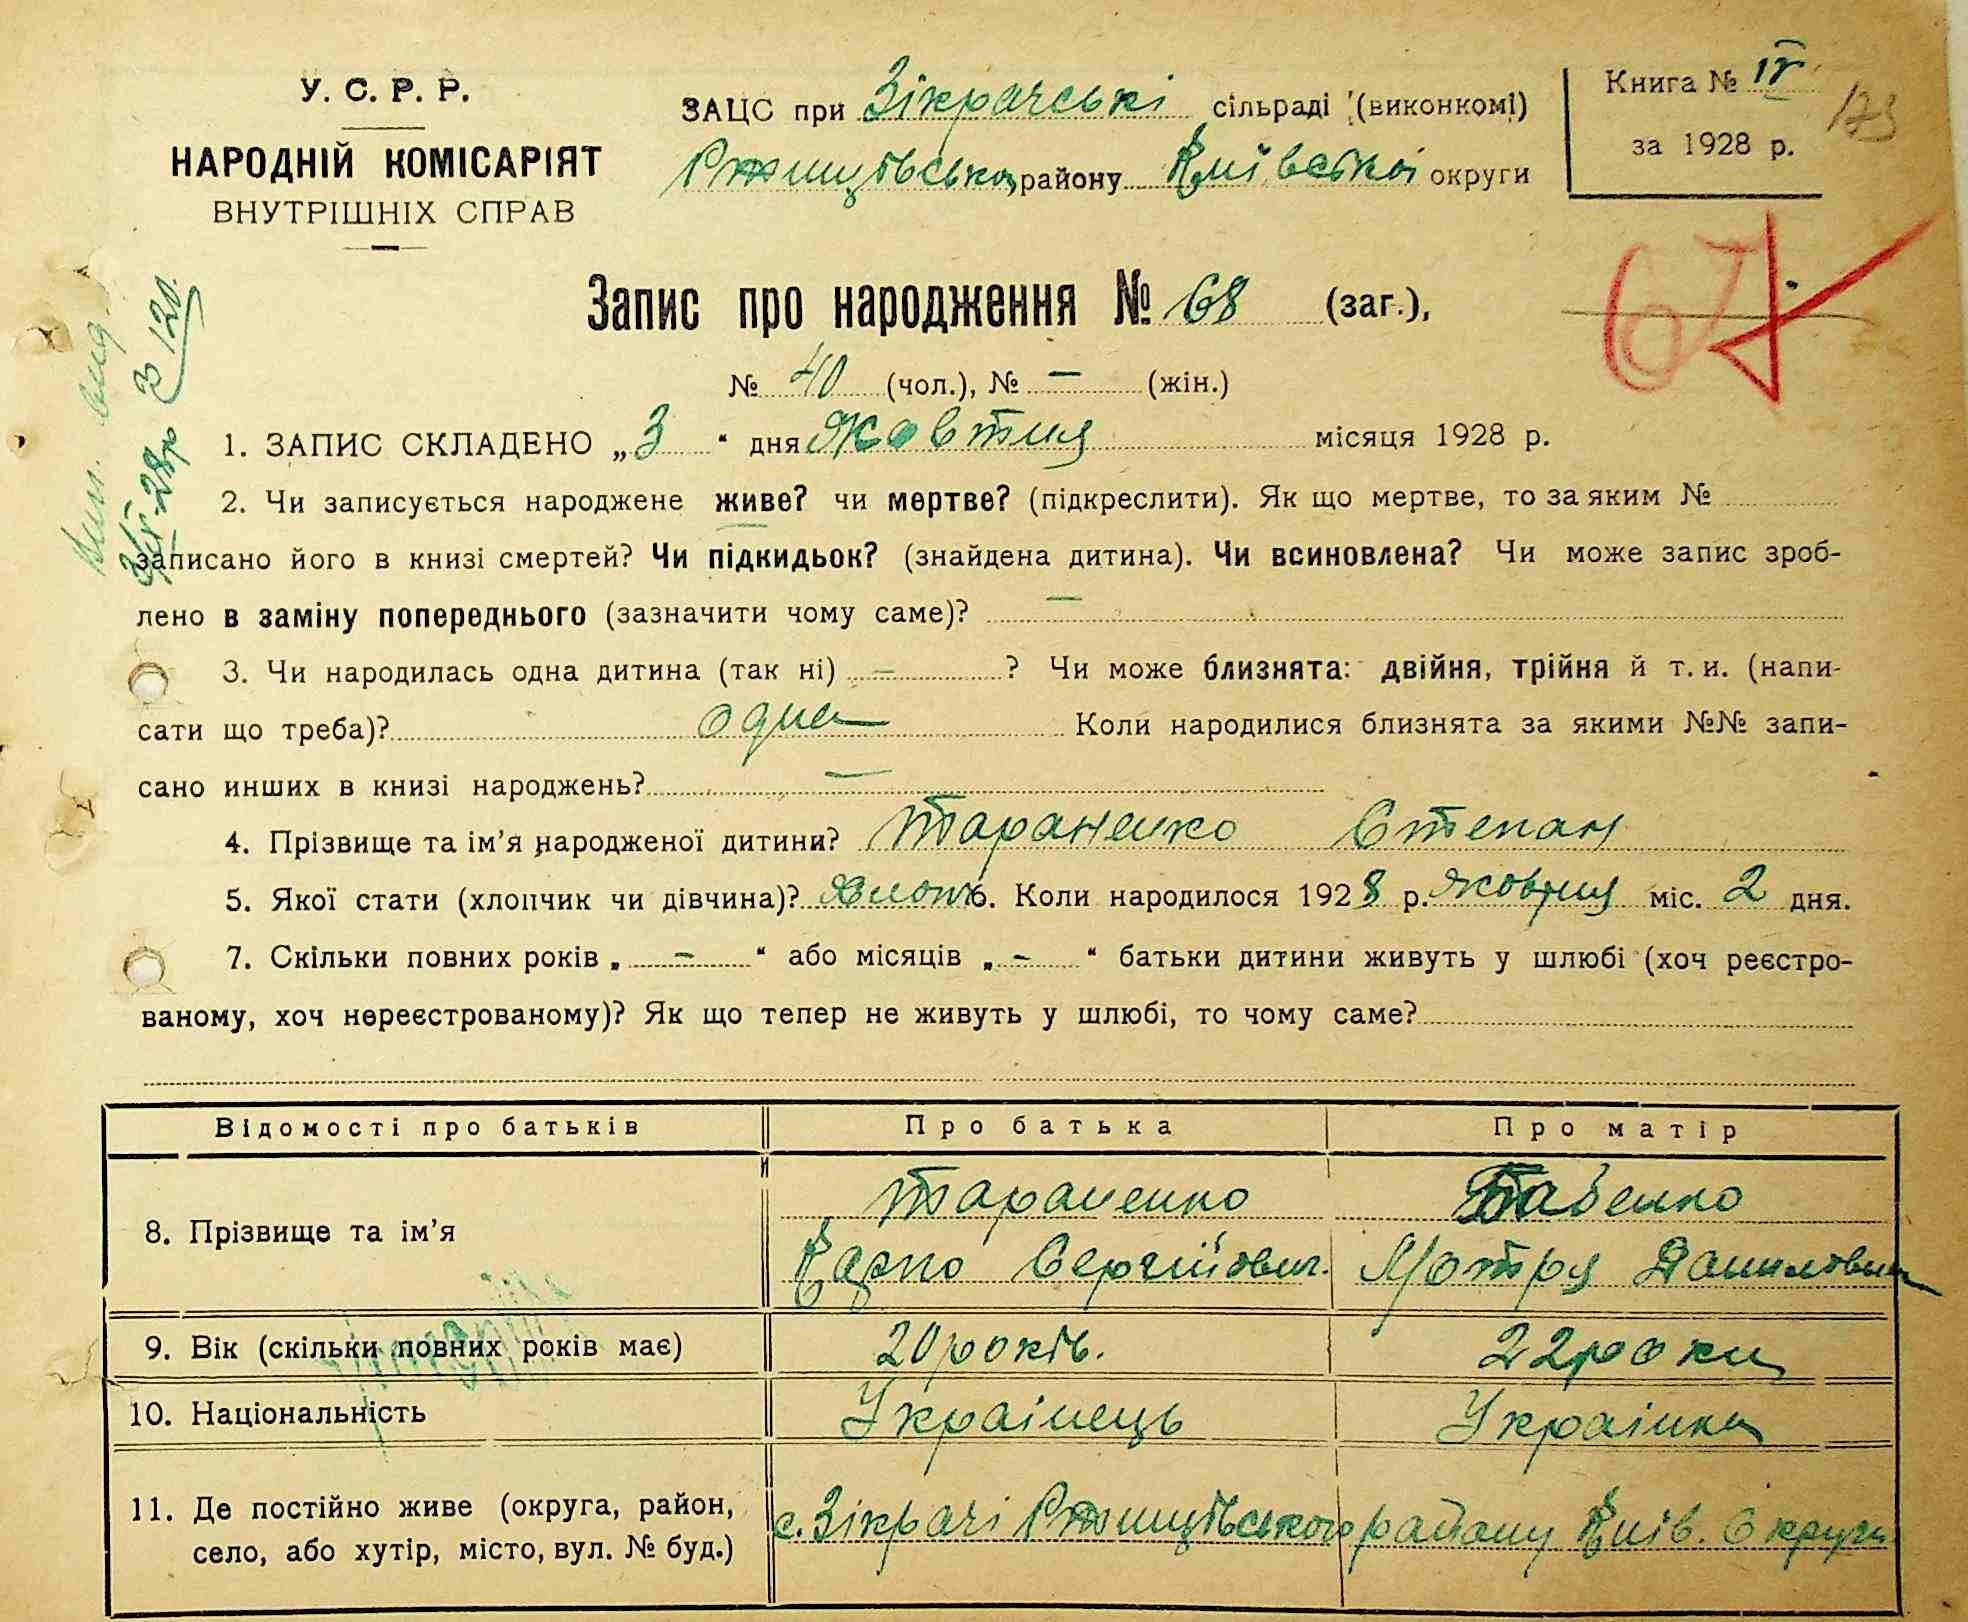 У. С. Р. Р.
НАРОДНІЙ КОМІСАРІЯТ
ВНУТРІШНІХ СПРАВ
ЗАЦС при Зікрачські сільраді (виконкомі)
Ржищівськ. району Київської округи
Книга № IV
за 1928 р.
173
67
Запис про народження № 68 (заг.),
№ 40 (чол.), № — (жін.)
1. ЗАПИС СКЛАДЕНО „3“ дня Жовтня місяця 1928 р.
2. Чи записується народжене живе? чи мертве? (підкреслити). Як що мертве, то за яким №
записано його в книзі смертей? Чи підкидьок? (знайдена дитина). Чи всиновлена? Чи може запис зроб-
лено в заміну попереднього (зазначити чому саме)? —
3. Чи народилась одна дитина (так ні) — ? Чи може близнята: двійня, трійня й т. и. (напи-
сати що треба)? одна Коли народилися близнята за якими №№ запи-
сано инших в книзі народжень? —
4. Прізвище та ім’я народженої дитини? Тараненко Степан
5. Якої стати (хлопчик чи дівчина)? Хлопч. 6. Коли народилося 1928 р. жовтня міс. 2 дня.
7. Скільки повних років „ — “ або місяців „ — “ батьки дитини живуть у шлюбі (хоч реєстро-
ваному, хоч нереєстрованому)? Як що тепер не живуть у шлюбі, то чому саме?
Відомості про батьків Про батька Про матір
8. Прізвище та ім’я
Тараненко
Карпо Сергійович.
Бабенко
Мотря Даниловна
9. Вік (скільки повних років має) 20 років. 22 роки
10. Національність Українець Українка
11. Де постійно живе (округа, район,
село, або хутір, місто, вул. № буд.)
с. Зікрачі Ржищівського району Київ. Округи